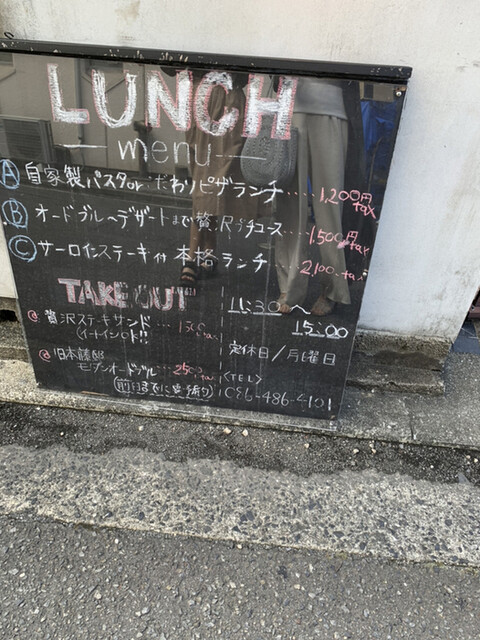 LUNCH
menu
Ⓐ 自家製パスタor だわりピザランチ・・・・・1,200円 tax
Ⓑ オードブル〜デザートまで贅沢プチコース・・・・1,500円 tax
Ⓒ サーロインステーキ付 本格ランチ・・・・2,100 tax
TAKE OUT
贅沢ステーキサンド・・・1300
(イートインOK!!
旧本藤邸
モダンオードブル・・・2500
(前日までに要予約)
11:30〜
15:00
定休日/月曜日
<TEL>
096-486-4101